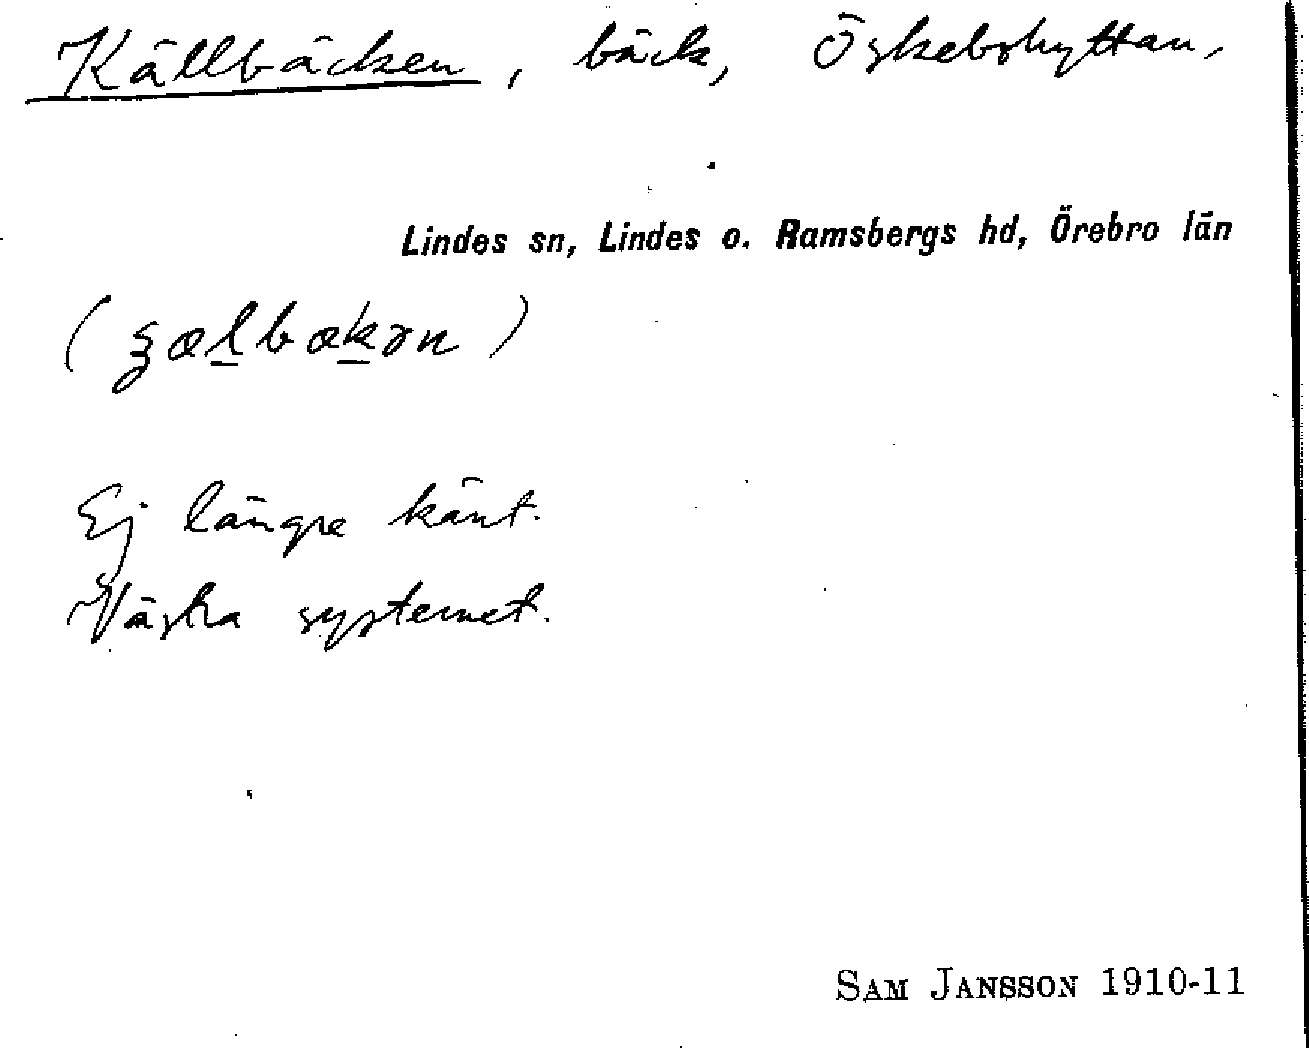 Källbäcken, bäck, Öskebohyttan,
Lindes sn, Lindes o. Ramsbergs hd, Örebro län
(ʒælbækən)
Ej längre känt.
Västra systemet.
SAM JANSSON 1910-11